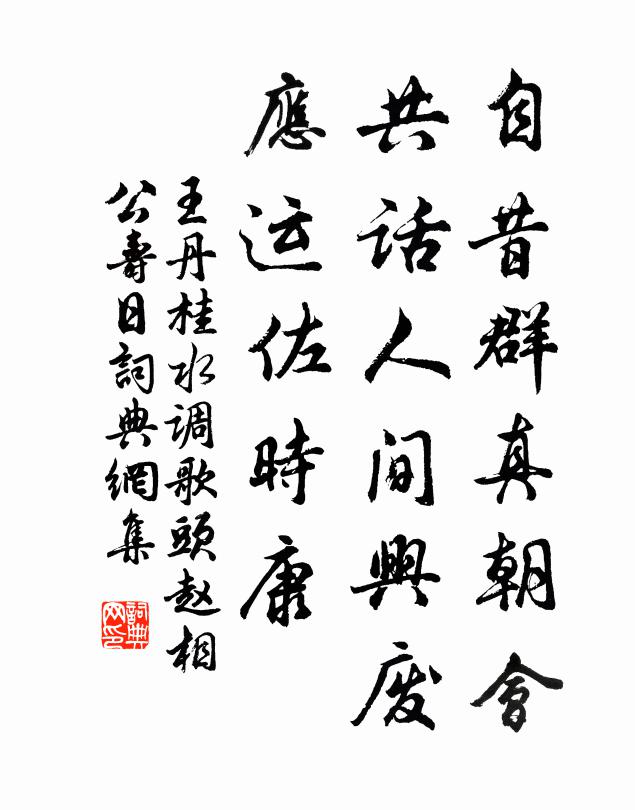 自昔群真朝會
共话人间興废
應运佐時康
王丹桂水调歌頭赵相
公壽日詞典網集
詞典网印